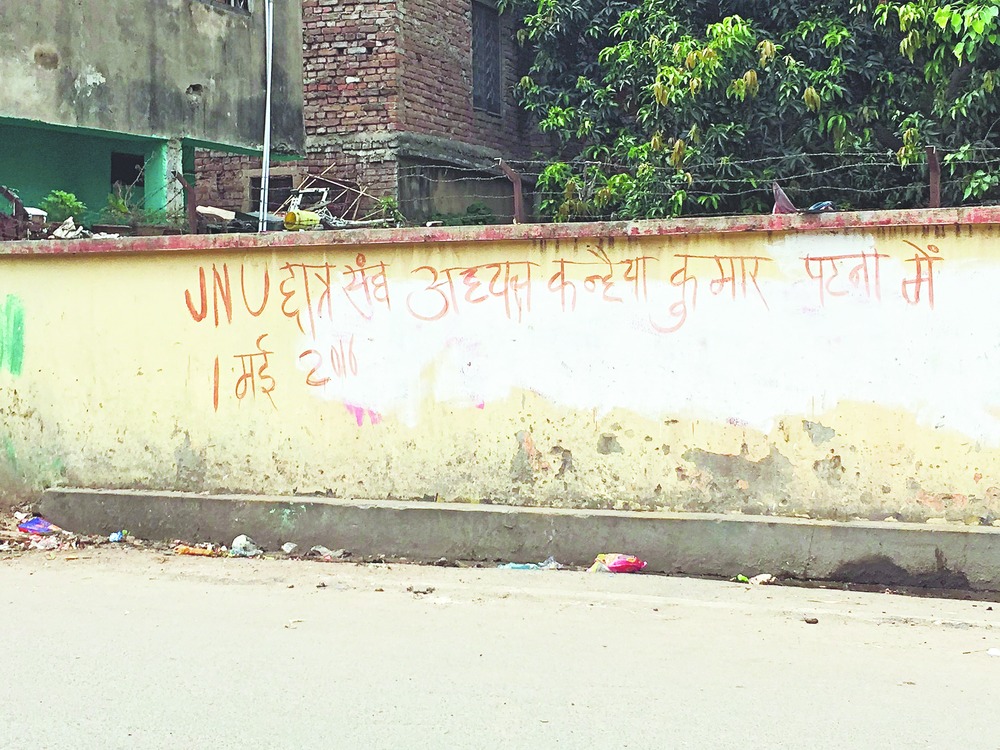 JNU छात्र संघ अध्यक्ष कन्हैया कुमार पटना में
1 मई 2016